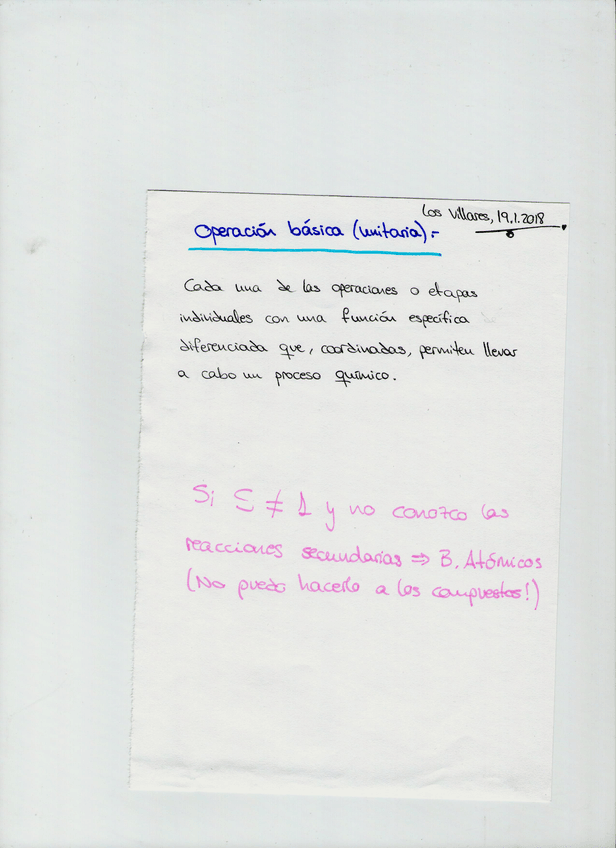 Los Villares, 19.1.2018
Operación básica (unitaria).-
Cada una de las operaciones o etapas
individuales con una función específica
diferenciada que, coordinadas, permiten llevar
a cabo un proceso químico.
Si S ≠ 1 y no conozco las
reacciones secundarias ⇒ B. Atómicos
(No puedo hacerlo a los compuestos!)